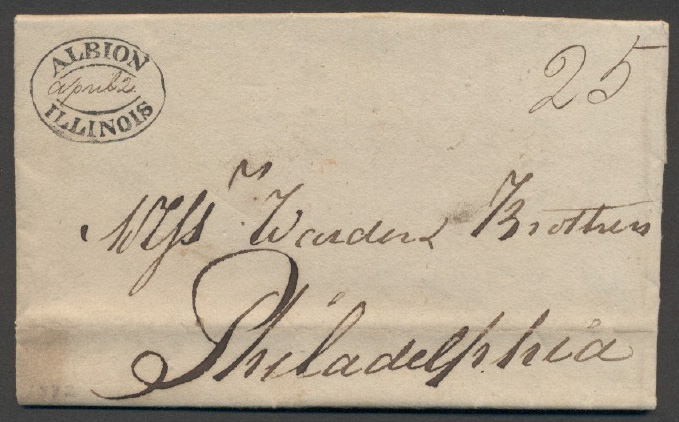 ALBION
april 2
ILLINOIS
25
Messrs Warder & Brothers
Philadelphia